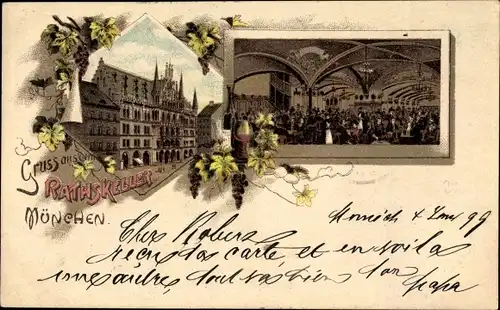 Gruss aus dem
RATHSKELLER
MÜNCHEN.
Munich 4 99
Cher Robert
reçu ta carte et en voilà
une autre, tout va bien ton
papa